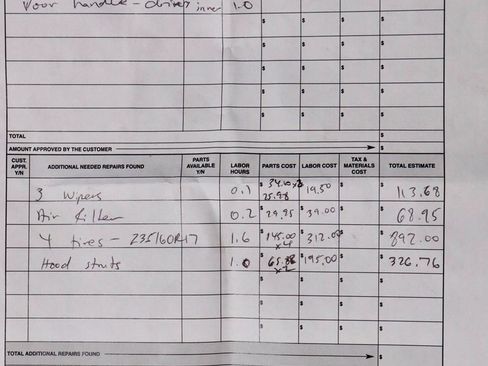 Door handle - driver inner 1.0
$ $ $ $
$ $ $ $
$ $ $ $
$ $ $ $
$ $ $ $
TOTAL $
AMOUNT APPROVED BY THE CUSTOMER $
CUST. APPR. Y/N ADDITIONAL NEEDED REPAIRS FOUND PARTS AVAILABLE Y/N LABOR HOURS PARTS COST LABOR COST TAX & MATERIALS COST TOTAL ESTIMATE
3 Wipers 0.1 $ 34.10 x2 25.98 $ 19.50 $ $ 113.68
Air Filter 0.2 $ 29.95 $ 39.00 $ $ 68.95
4 tires - 235/60R17 1.6 $ 145.00 x4 $ 312.00 $ $ 892.00
Hood struts 1.0 $ 65.88 x2 $ 195.00 $ $ 326.76
$ $ $ $
$ $ $ $
$ $ $ $
TOTAL ADDITIONAL REPAIRS FOUND $